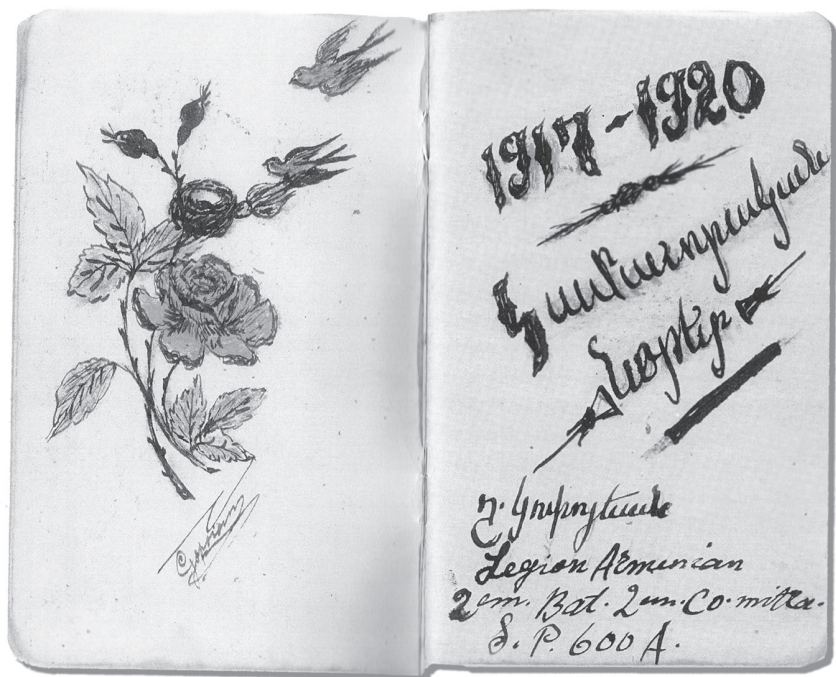 1917-1920
Կամաւորական
Նօթեր
Legion Armenian
2em. Bat. 2em. Co. mitra.
S. P. 600 A.